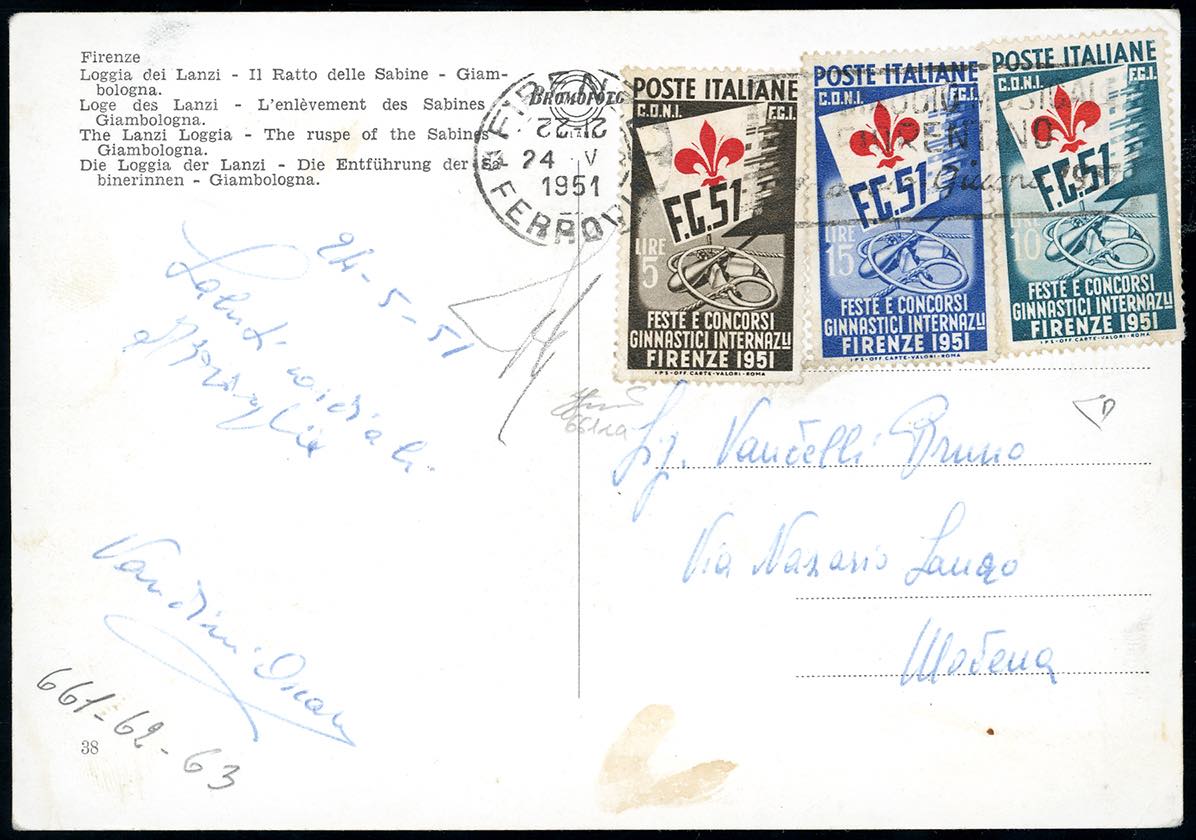 Firenze
Loggia dei Lanzi - Il Ratto delle Sabine - Giam-
bologna.
Loge des Lanzi - L'enlèvement des Sabines
Giambologna.
The Lanzi Loggia - The ruspe of the Sabines
Giambologna.
Die Loggia der Lanzi - Die Entführung der Sa-
binerinnen - Giambologna.
21-22
24 V
1951
FERROVIA
POSTE ITALIANE
C.O.N.I. F.G.I.
F.G.51
LIRE
5
FESTE E CONCORSI
GINNASTICI INTERNAZLI
FIRENZE 1951
IPS-OFF.CARTE-VALORI-ROMA
POSTE ITALIANE
C.O.N.I. F.G.I.
F.G.51
LIRE
15
FESTE E CONCORSI
GINNASTICI INTERNAZLI
FIRENZE 1951
IPS-OFF.CARTE-VALORI-ROMA
POSTE ITALIANE
C.O.N.I. F.G.I.
F.G.51
LIRE
10
FESTE E CONCORSI
GINNASTICI INTERNAZLI
FIRENZE 1951
IPS-OFF.CARTE-VALORI-ROMA
24-5-51
Saluti cordiali
Sig. Vancelli Bruno
Via Nazario Sauro
Modena
661-62-63
38